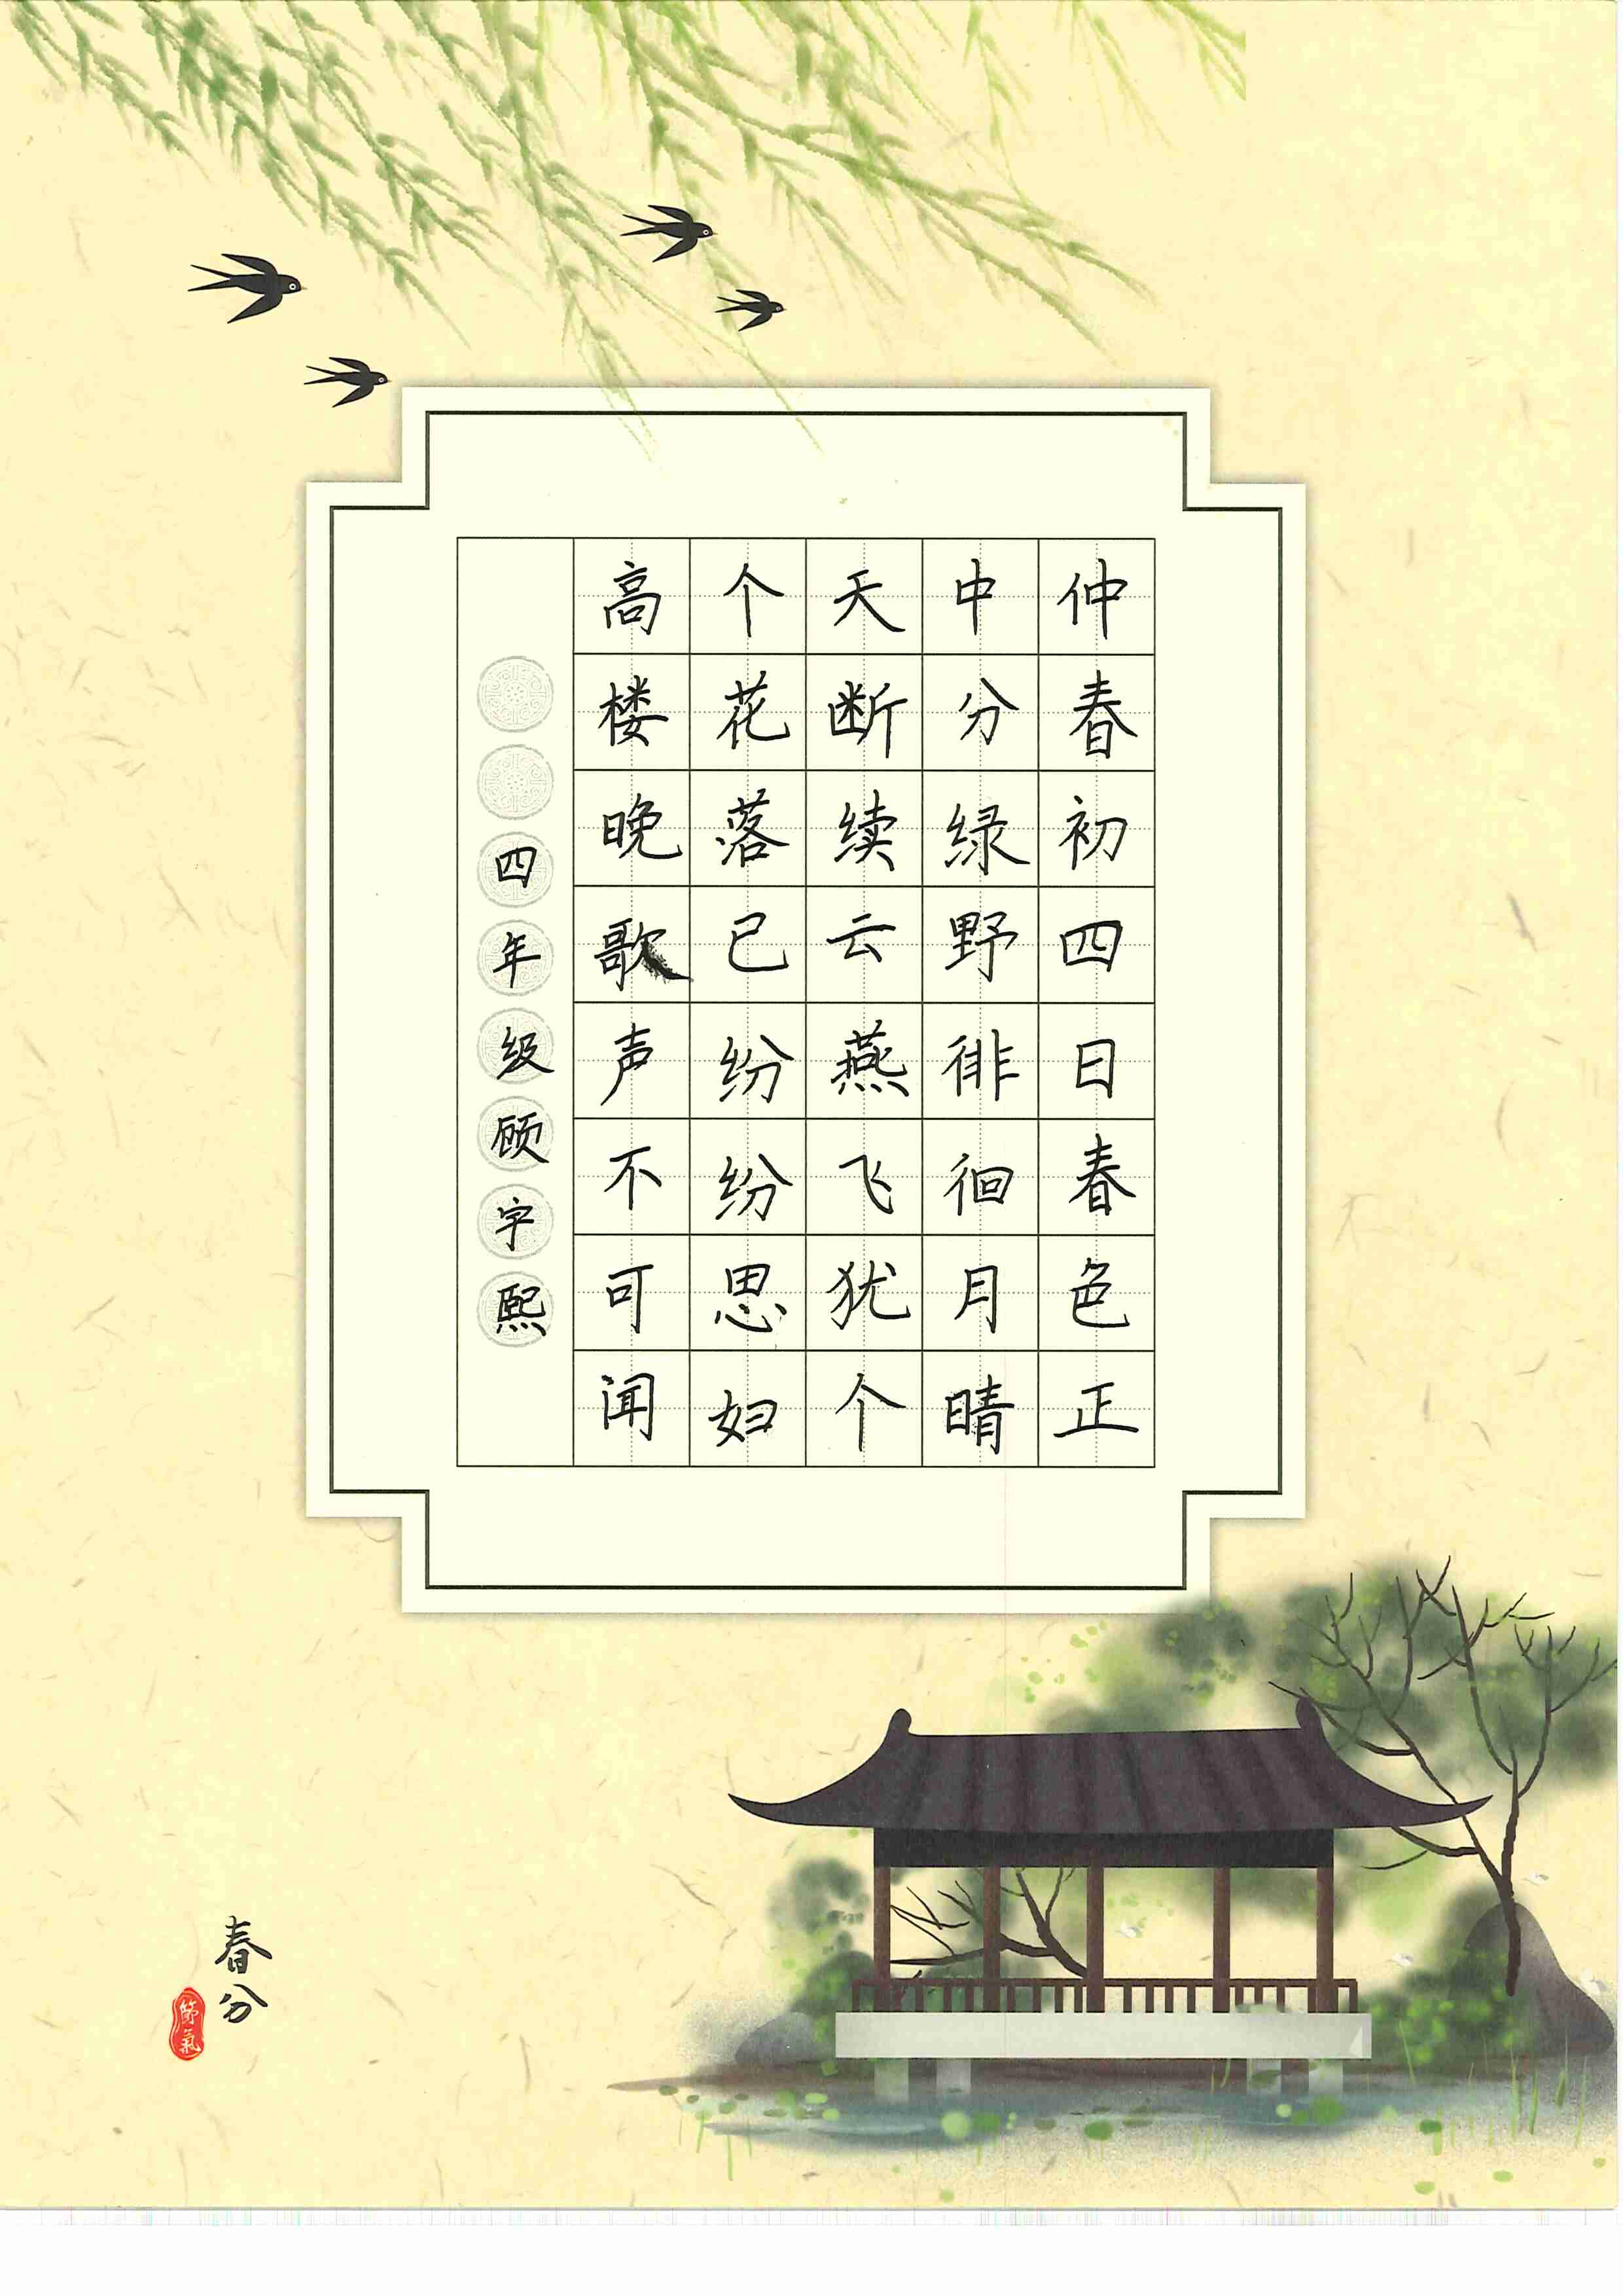 仲春初四日春色正
中分绿野徘徊月晴
天断续云燕飞犹个
个花落已纷纷思妇
高楼晚歌声不可闻
四年级顾字熙
春分
節氣